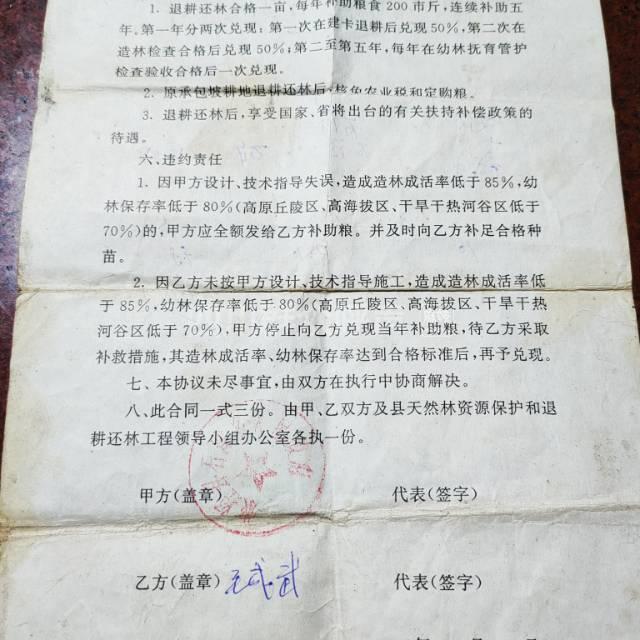 1. 退耕还林合格一亩,每年补助粮食200市斤,连续补助五
年。第一年分两次兑现:第一次在建卡退耕后兑现50%,第二次在
造林检查合格后兑现50%;第二至第五年,每年在幼林抚育管护
检查验收合格后一次兑现。
2. 原承包坡耕地退耕还林后,核免农业税和定购粮。
3. 退耕还林后,享受国家、省将出台的有关扶持补偿政策的
待遇。
六、违约责任
1. 因甲方设计、技术指导失误,造成造林成活率低于85%,幼
林保存率低于80%(高原丘陵区、高海拔区、干旱干热河谷区低于
70%)的,甲方应全额发给乙方补助粮。并及时向乙方补足合格种
苗。
2. 因乙方未按甲方设计、技术指导施工,造成造林成活率低
于85%,幼林保存率低于80%(高原丘陵区、高海拔区、干旱干热
河谷区低于70%),甲方停止向乙方兑现当年补助粮,待乙方采取
补救措施,其造林成活率、幼林保存率达到合格标准后,再予兑现。
七、本协议未尽事宜,由双方在执行中协商解决。
八、此合同一式三份。由甲、乙双方及县天然林资源保护和退
耕还林工程领导小组办公室各执一份。
甲方(盖章) 代表(签字)
乙方(盖章) 代表(签字)